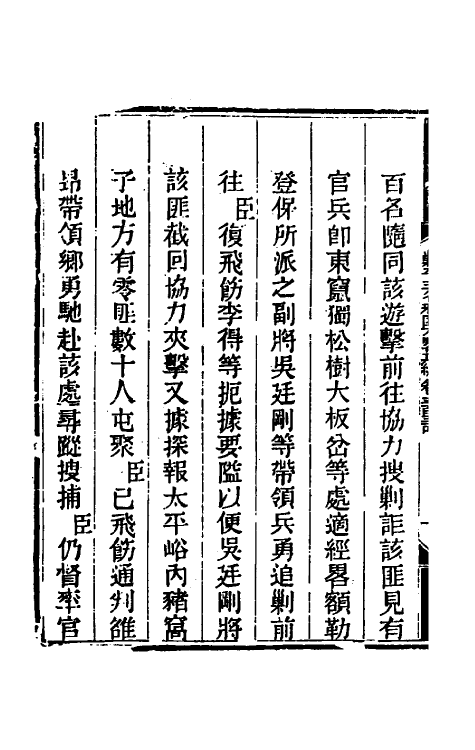 百名隨同該遊擊前往協力搜剿詎該匪見有
官兵卽東竄獨松樹大板岔等處適經畧額勒
登保所派之副將吳廷剛等帶領兵勇追剿前
往臣復飛飭李得等扼據要隘以便吳廷剛將
該匪截回協力夾擊又據探報太平峪內豬窩
子地方有零匪數十人屯聚臣已飛飭通判雒
昻帶領鄉勇馳赴該處尋蹤搜捕臣仍督率官